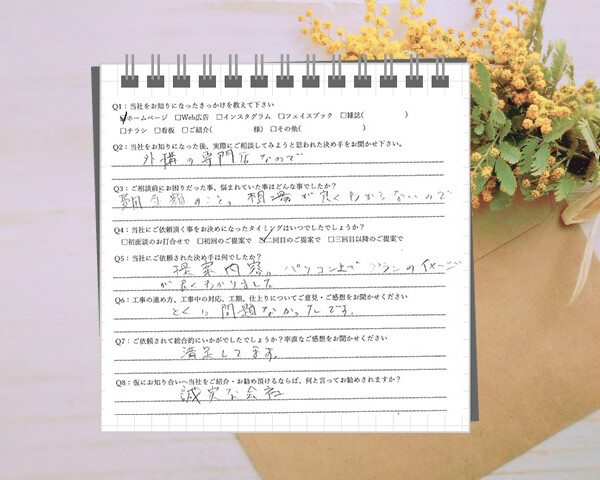 Q1：当社をお知りになったきっかけを教えて下さい
☑ホームページ □Web広告 □インスタグラム □フェイスブック □雑誌( )
□チラシ □看板 □ご紹介( 様) □その他( )
Q2：当社をお知りになった後、実際にご相談してみようと思われた決め手をお聞かせ下さい。
外構の専門店なので
Q3：ご相談前にお困りだった事、悩まれていた事はどんな事でしたか？
金額のこと。相場が良くわからないので
Q4：当社にご依頼頂く事をお決めになったタイミングはいつでしたでしょうか？
□初面談のお打合せで □初回のご提案で ☑二回目のご提案で □三回目以降のご提案で
Q5：当社にご依頼された決め手は何でしたか？
提案内容。パソコン上でプランのイメージ
が良くわかりました
Q6：工事の進め方、工事中の対応、工期、仕上りについてご意見・ご感想をお聞かせください
とくに問題なかったです。
Q7：ご依頼されて総合的にいかがでしたでしょうか？率直なご感想をお聞かせください
満足してます。
Q8：仮にお知り合いへ当社をご紹介・お勧め頂けるならば、何と言ってお勧めされますか？
誠実な会社